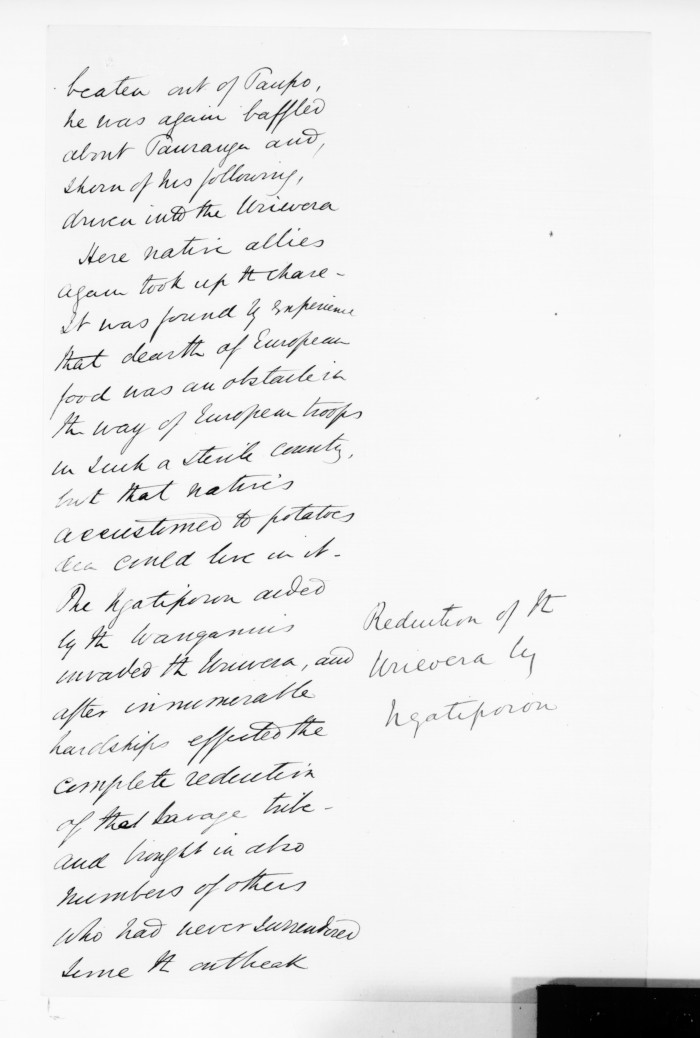 beaten out of Taupo,
he was again baffled
about Tauranga and,
shorn of his following,
driven into the Uriwera
Here native allies
again took up the chase -
It was found by experience
that dearth of European
food was an obstacle in
the way of European troops
in such a sterile country,
but that natives
accustomed to potatoes
could live in it -
The Ngatiporou aided
by the Wanganuis
invaded the Uriwera, and
after innumerable
hardships effected the
complete reduction
of that savage tribe -
and brought in also
numbers of others
who had never surrendered
since the outbreak
Reduction of the
Uriwera by
Ngatiporou